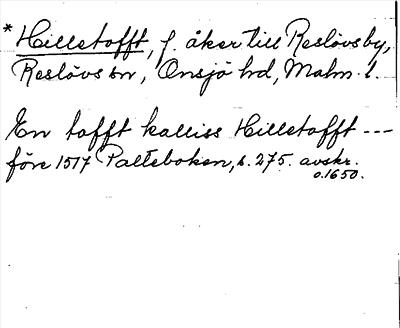 * Hilletofft, f. åker till Reslövsby,
Reslövs sn, Onsjö hd, Malm. l.
En tofft kalliss Hilletofft ---
före 1517 Palteboken, s. 275. avskr.
o. 1650.